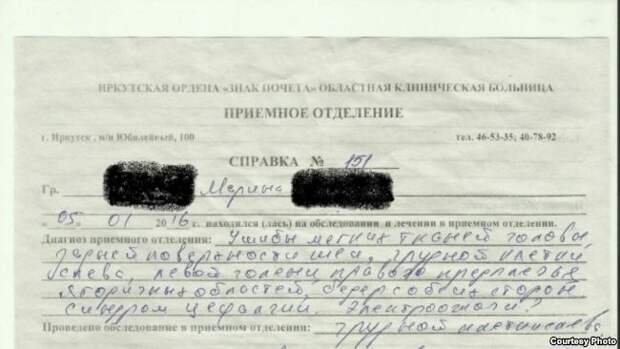 ИРКУТСКАЯ ОРДЕНА «ЗНАК ПОЧЕТА» ОБЛАСТНАЯ КЛИНИЧЕСКАЯ БОЛЬНИЦА
ПРИЕМНОЕ ОТДЕЛЕНИЕ
г. Иркутск, м/н Юбилейный, 100 тел. 46-53-35; 40-78-92
СПРАВКА № 151
Гр. Марина
„ 05 „ 01 2016 г. находился (лась) на обследовании и лечении в приемном отделении.
Диагноз приемного отделения: Ушибы мягких тканей головы,
задней поверхности шеи, грудной клетки
слева, левой голени, правого предплечья
ягодичных областей, бедер с обеих сторон
синдром цефалгии. Электроожоги?
Проведено обследование в приемном отделении: грудной клетки слева
Courtesy Photo